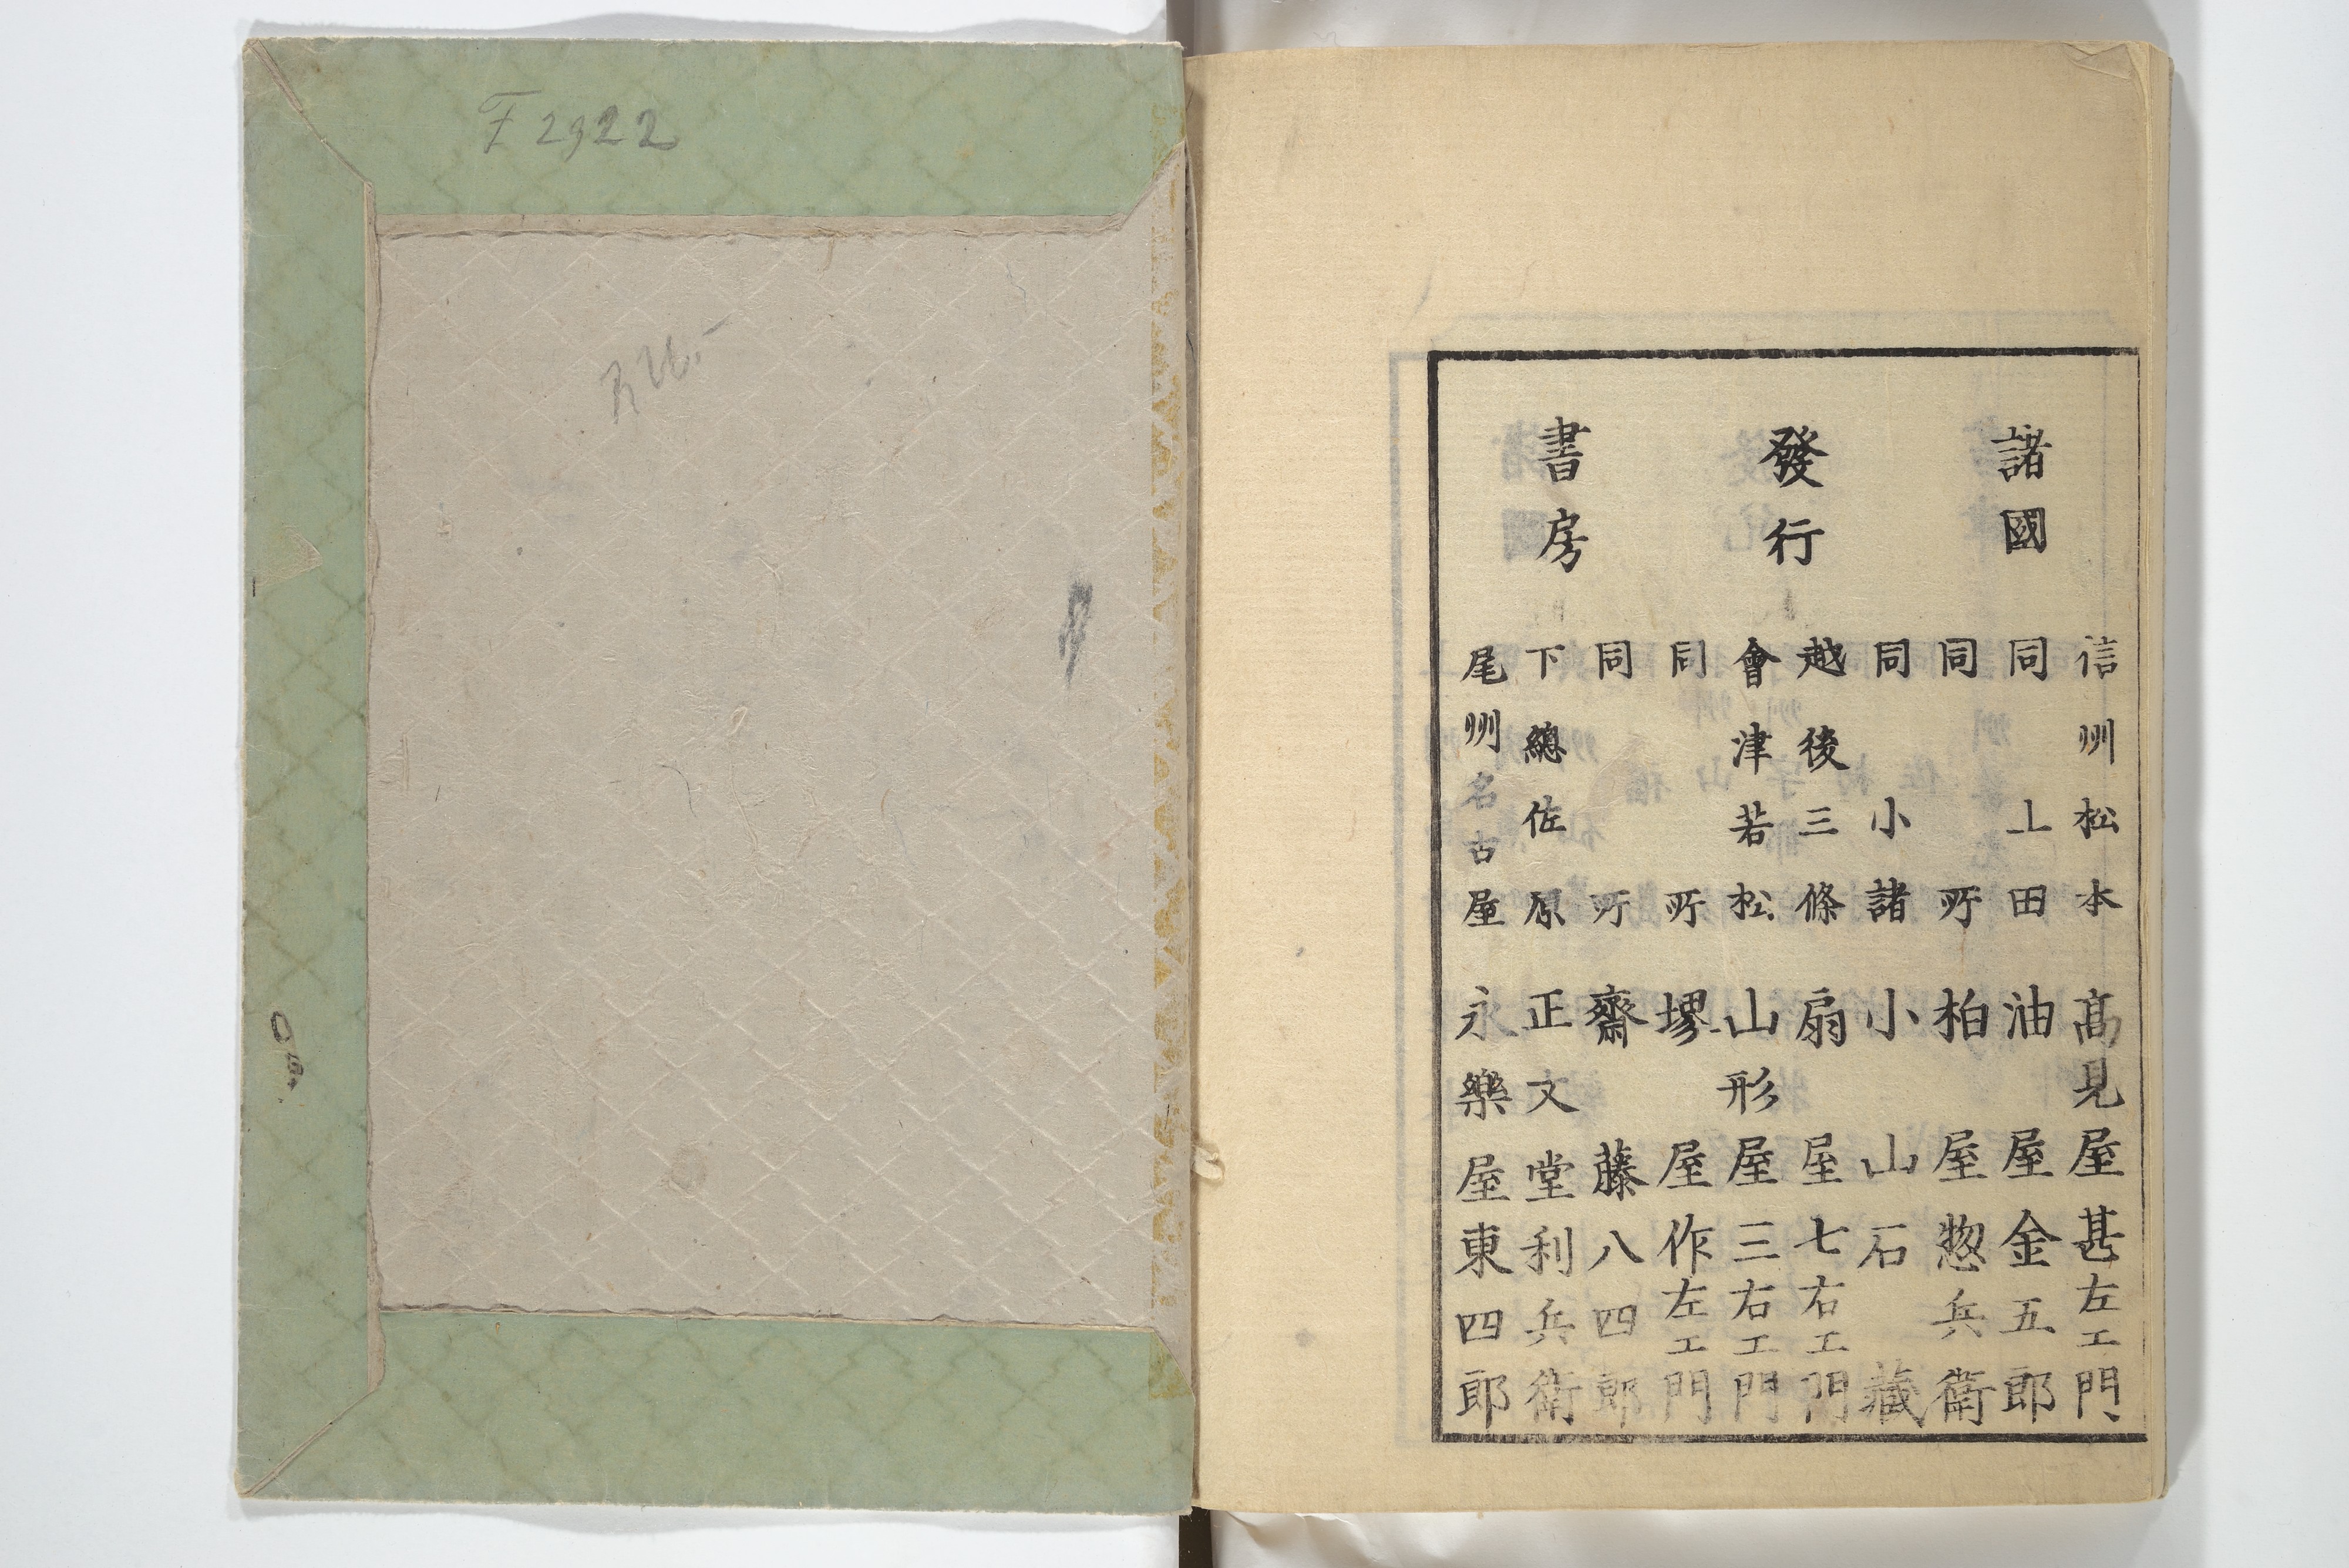 諸國
發行
書房
信州松本 髙見屋甚左エ門
同 上田 油屋金五郎
同所 柏屋惣兵衛
同 小諸 小山石藏
越後三條 扇屋七右エ門
會津若松 山形屋三右エ門
同所 堺屋作左エ門
同所 齋藤八四郎
下總佐原 正文堂利兵衛
尾州名古屋 永樂屋東四郎
F 2922